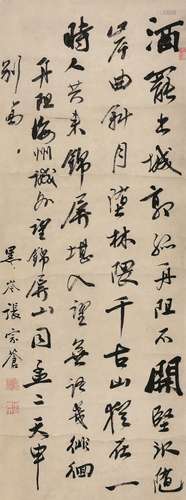 酒罷出城郭孤舟阻不開堅氷随
岸曲斜月墮林隈千古山猶在一
時人共来錦屏堪入望無語幾徘徊
舟阻海州城外望錦屏山同孟二天申
別駕
墨岑張宗蒼